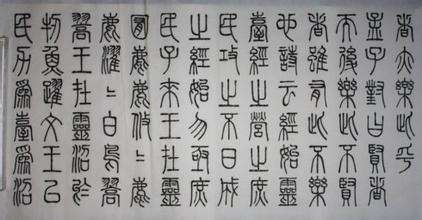 者亦樂此乎
孟子對曰賢者
而後樂此不賢
者雖有此不樂
也詩云經始靈
臺經之營之庶
民攻之不日成
之經始勿亟庶
民子來王在靈
囿麀鹿攸伏麀
鹿濯濯白鳥翯
翯王在靈沼於
牣魚躍文王以
民力為臺為沼